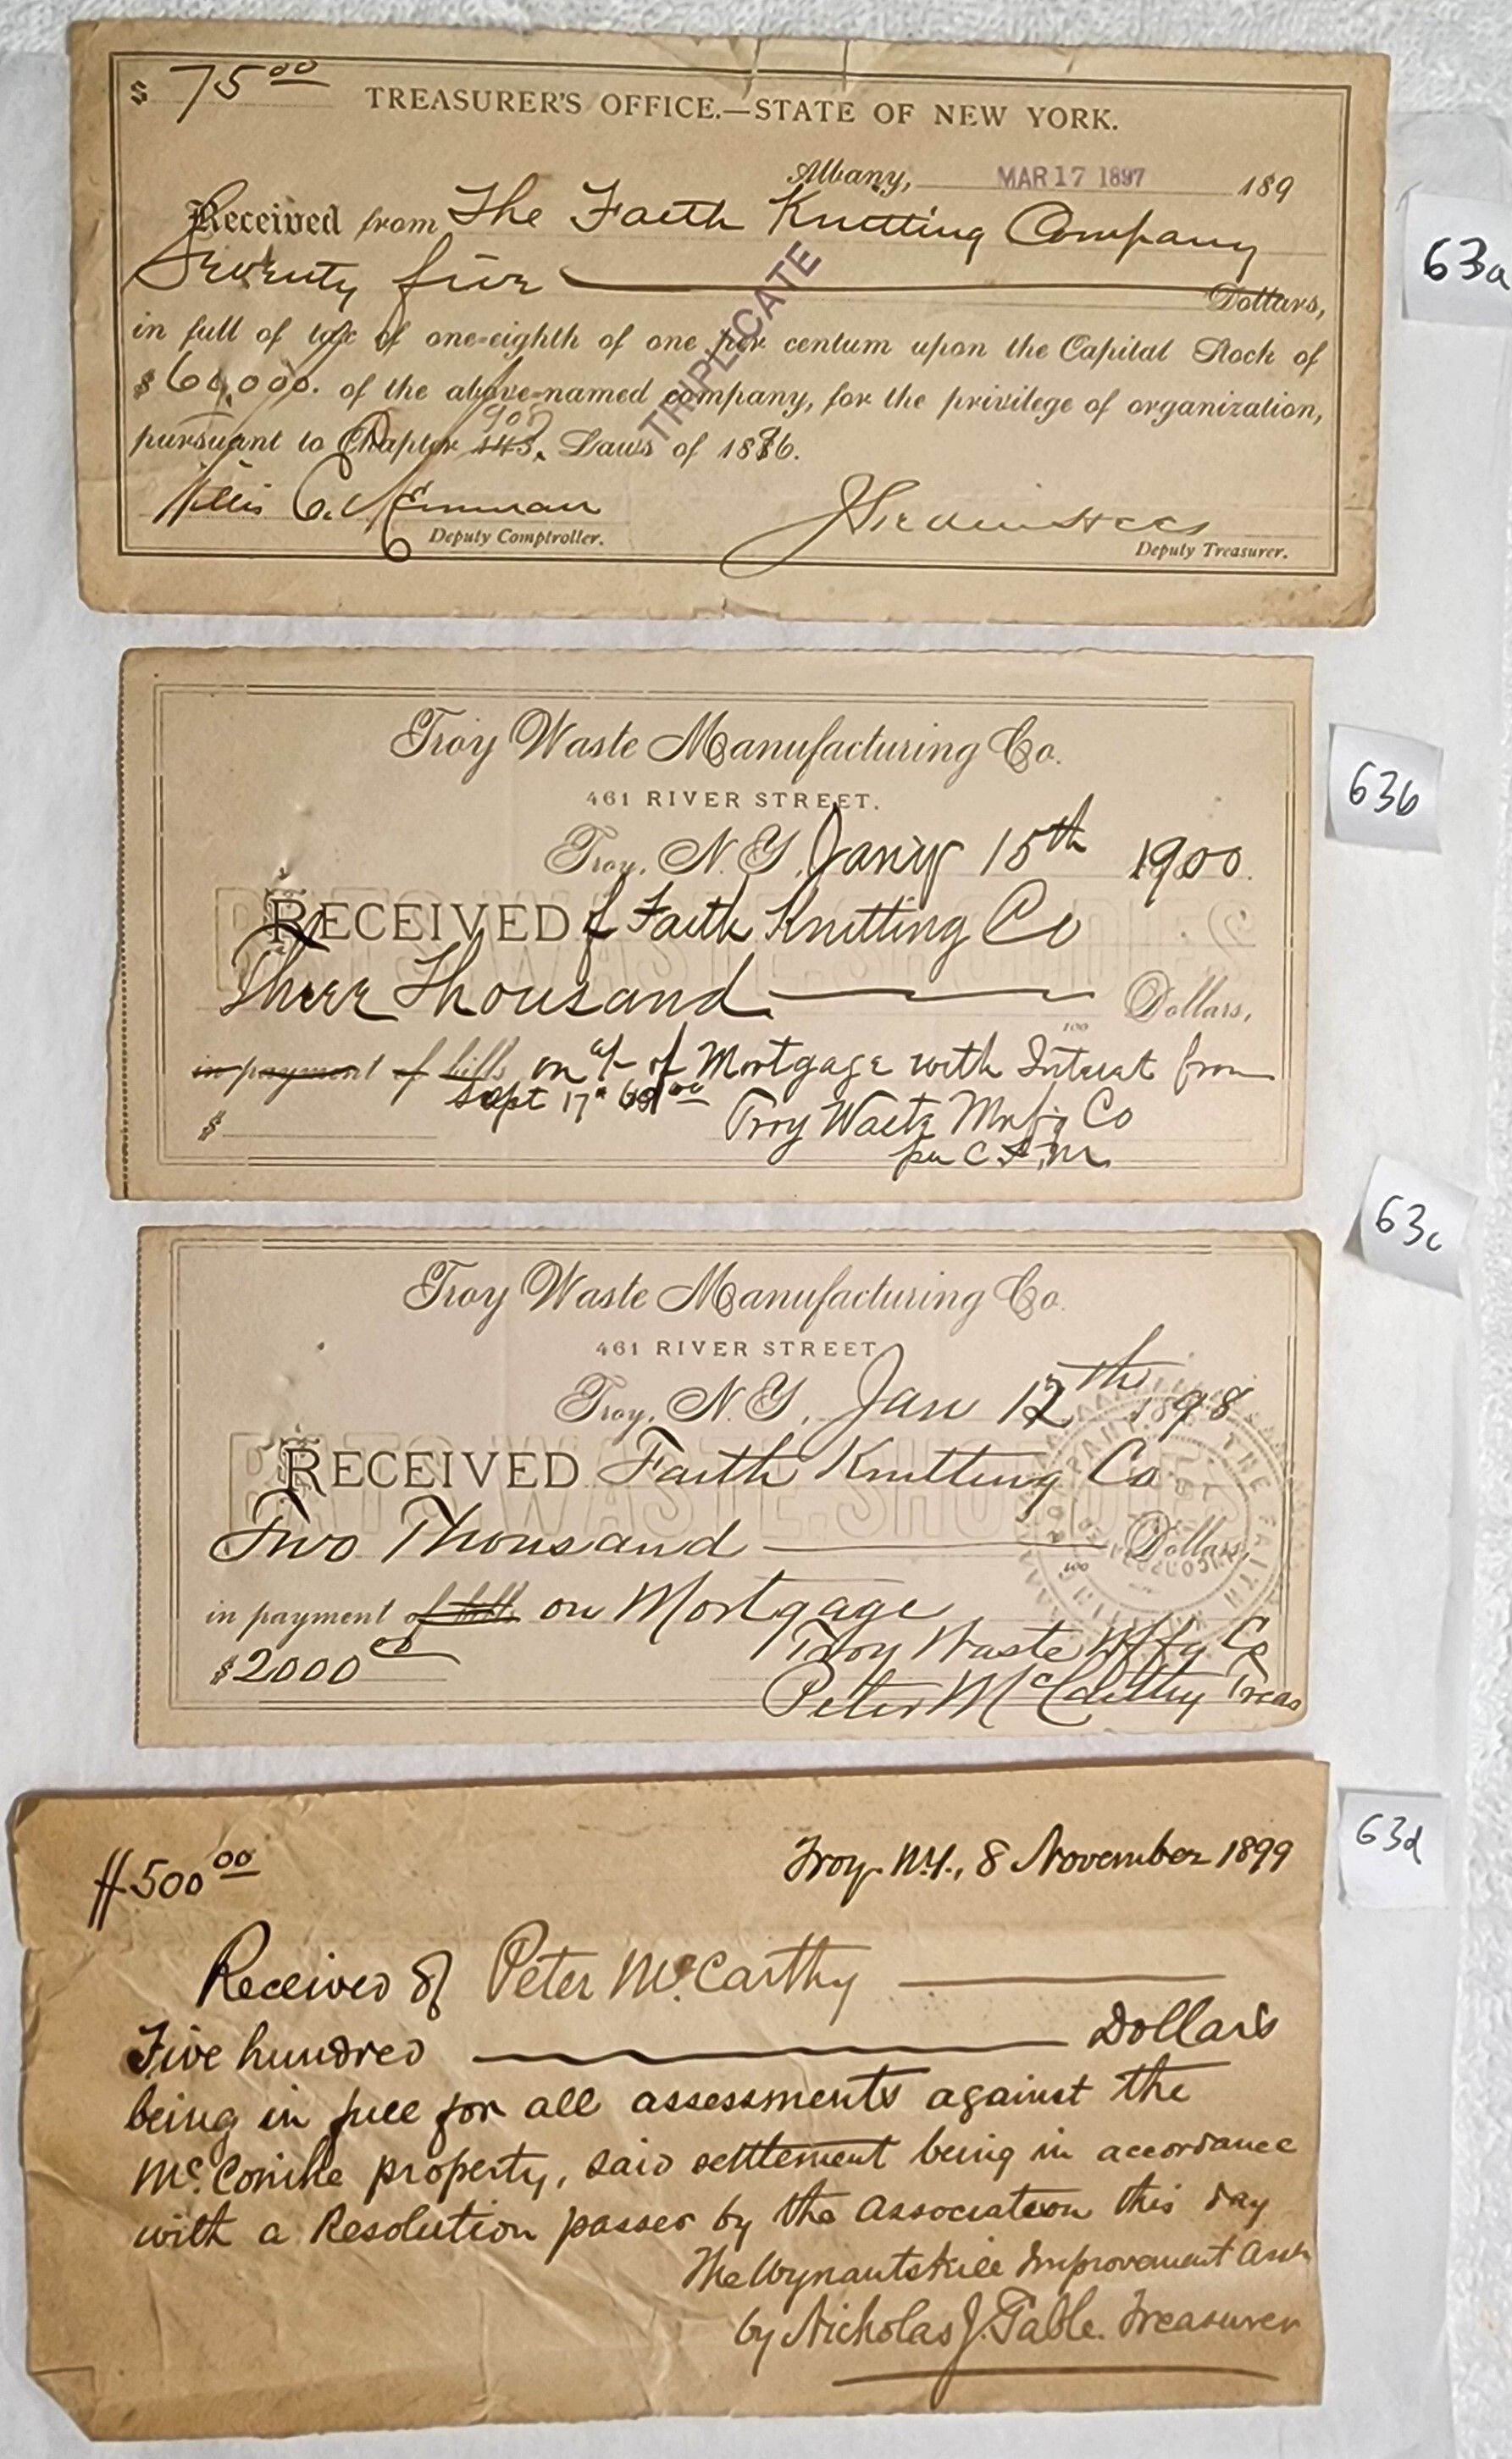 $ 75 00
TREASURER'S OFFICE.—STATE OF NEW YORK.
Albany, MAR 17 1897 189
Received from The Faith Knitting Company
Seventy five Dollars,
in full of tax of one-eighth of one per centum upon the Capital Stock of
$ 60,000. of the above-named company, for the privilege of organization,
908
pursuant to Chapter 143, Laws of 1896.
TRIPLICATE
Willis E. Merriman
Deputy Comptroller.
Deputy Treasurer.
63a
Troy Waste Manufacturing Co.
461 RIVER STREET.
Troy, N.Y. Jany 15th 1900.
BATS. WASTE. SHODDIES
RECEIVED of Faith Knitting Co
Three Thousand Dollars,
100
in payment of bills on a/c of Mortgage with Intrest from
Sept 17"
$ Troy Waste Mnfg Co
per C.F.M.
63b
Troy Waste Manufacturing Co.
461 RIVER STREET.
Troy, N.Y. Jan 12th 1898
BATS. WASTE. SHODDIES
RECEIVED Faith Knitting Co
Two Thousand Dollars,
100
in payment of bills on Mortgage
$ 2000 00 Troy Waste Mffg Co
Peter McCarthy Treas
THE FAITH KNITTING COMPANY
INCORPORATED
63c
$500 00 Troy N.Y., 8 November 1899
Received of Peter McCarthy
Five hundred Dollars
being in full for all assessments against the
McConihe property, said settlement being in accordance
with a Resolution passed by the Association this day
The Wynantskill Improvement Assn
by Nicholas J. Gable. Treasurer
63d